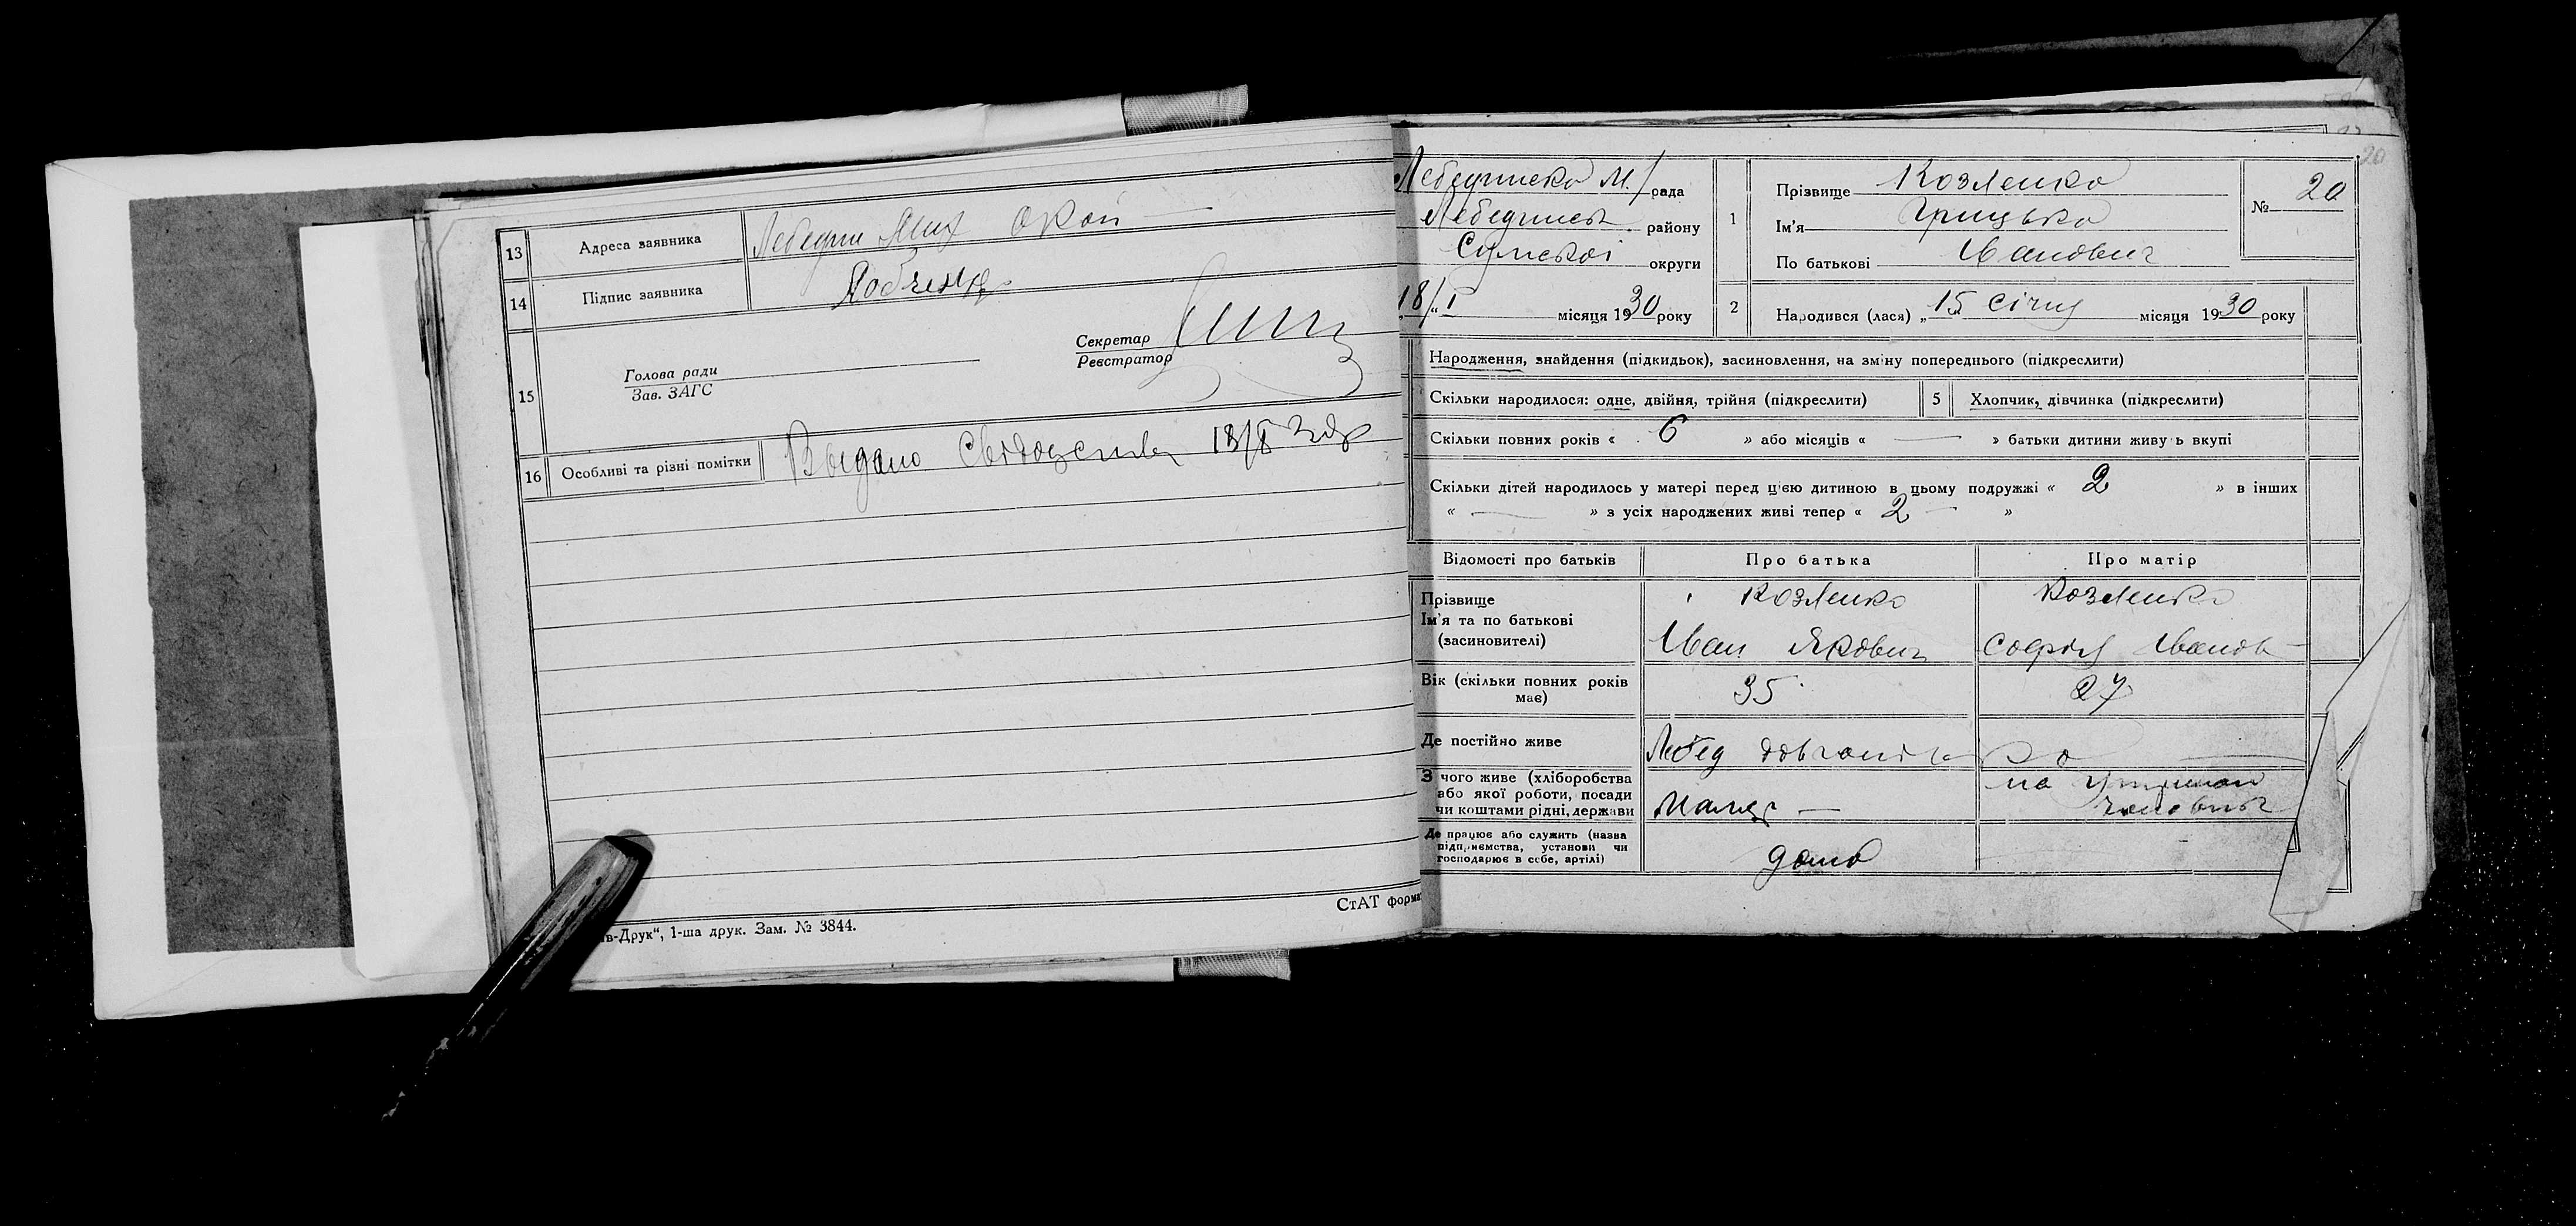 13 Адреса заявника Лебедин Мих окол
14 Підпис заявника
15 Голова ради
Зав. ЗАГС
Секретар
Реєстратор
16 Особливі та різні помітки Выдано Свідоцство 18/I 30р
СтАТ форма
в-Друк“, 1-ша друк. Зам. № 3844.
20
Лебединська М. рада
Лебединськ району
Сумської округи
„18/“ I місяця 1930 року
1 Прізвище Козленко
Ім'я Грицько
По батькові Іванович
№ 20
2 Народився (лася) „15 січня місяця 1930 року
Народження, знайдення (підкидьок), засиновлення, на зміну попереднього (підкреслити)
Скільки народилося: одне, двійня, трійня (підкреслити) 5 Хлопчик, дівчинка (підкреслити)
Скільки повних років « 6 » або місяців « — » батьки дитини живуть вкупі
Скільки дітей народилось у матері перед цією дитиною в цьому подружжі « 2 » в інших
« — » з усіх народжених живі тепер « 2 — »
Відомості про батьків Про батька Про матір
Прізвище Козленко Козленко
Ім'я та по батькові
(засиновителі) Іван Якович Софія Іванов
Вік (скільки повних років
має) 35 27
Де постійно живе Лебед
З чого живе (хліборобства
або якої роботи, посади
чи коштами рідні, держави на утриман
Де працює або служить (назва
підприємства, установи чи
господарює в себе, артілі) дома